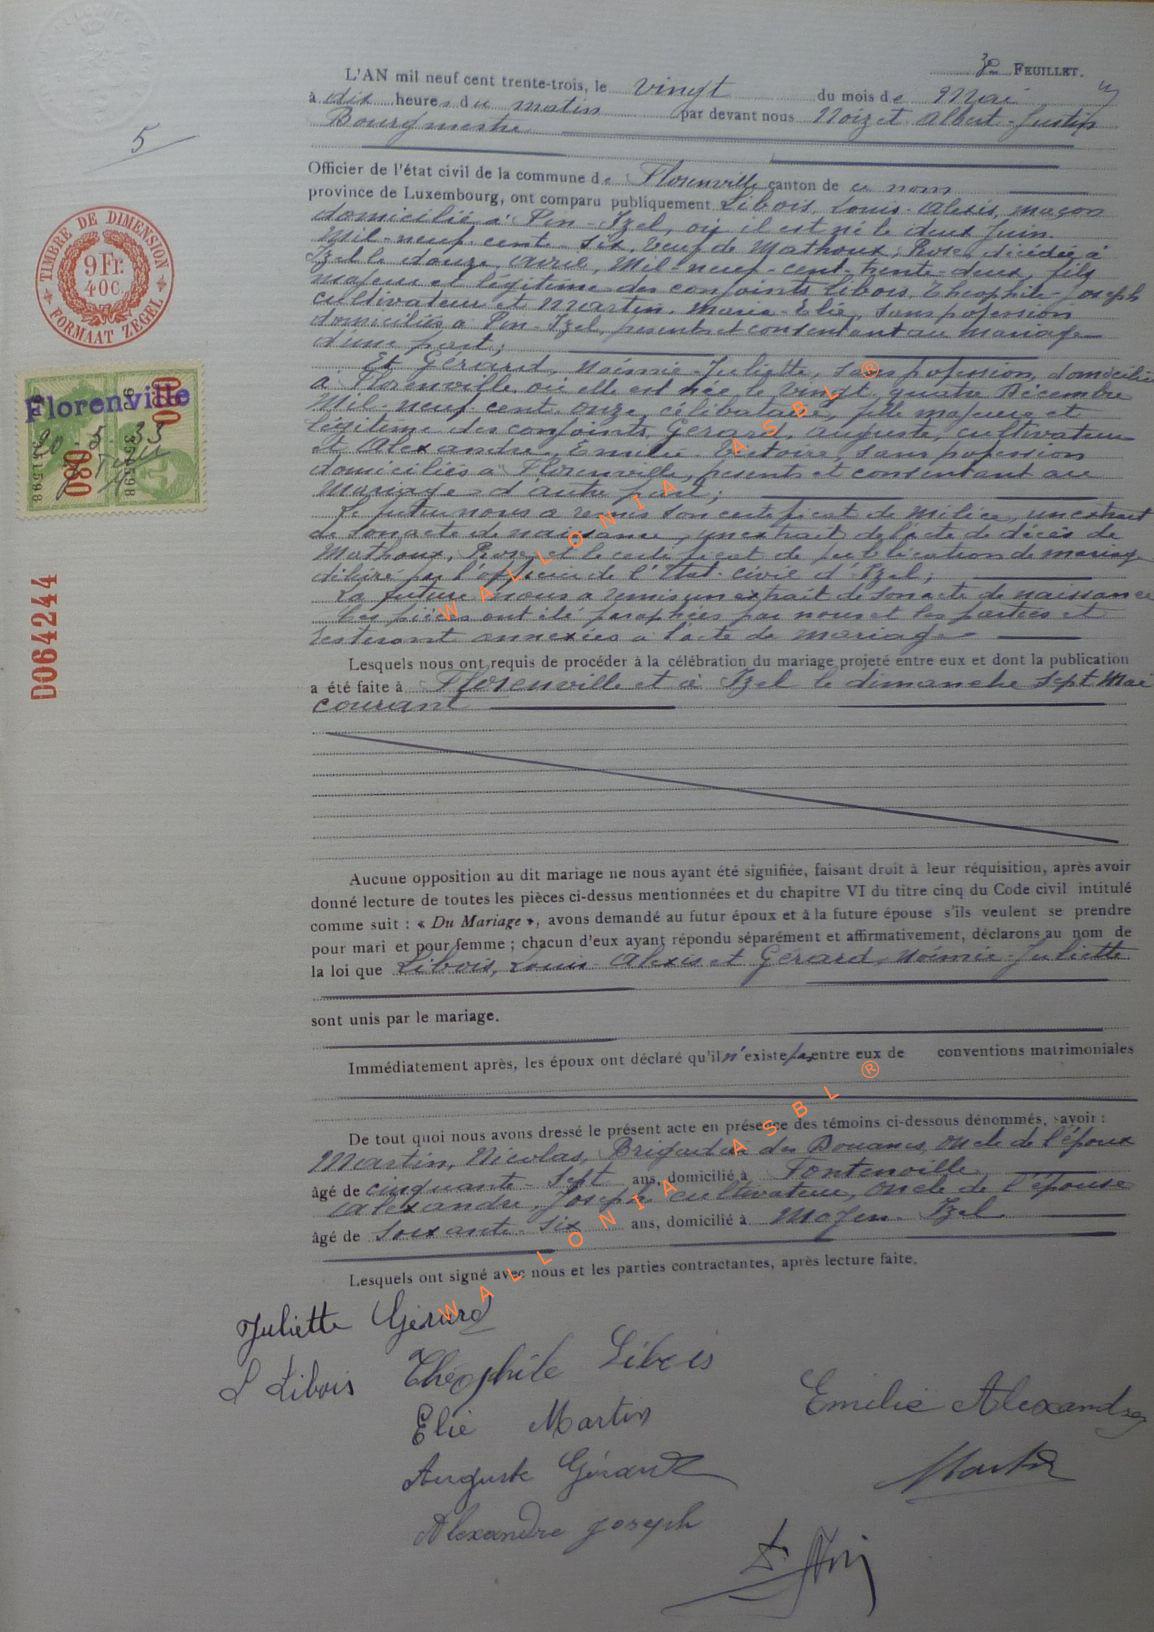 3e FEUILLET.
L'AN mil neuf cent trente-trois, le vingt du mois de Mai
à dix heures du matin par devant nous Noizet Albert-Justin
Bourgmestre
5
Officier de l'état civil de la commune de Florenville canton de ce nom
province de Luxembourg, ont comparu publiquement Libois, Louis-Alexis, maçon
domicilié à Pin-Izel, où il est né le deux Juin
Mil-neuf-cent-six, veuf de Mathoux, Rose, décédée à
Izel le douze Avril, Mil-neuf-cent-trente-deux, fils
majeur et légitime des conjoints Libois, Théophile-Joseph
cultivateur et Martin, Marie-Elie, sans profession
domiciliés à Pin-Izel, présents et consentant au mariage
d'une part;
Et Gérard, Noémie-Juliette, sans profession, domiciliée
à Florenville où elle est née le vingt-quatre Décembre
Mil-neuf-cent-onze, célibataire, fille majeure et
légitime des conjoints, Gérard, Auguste, cultivateur
et Alexandre, Emilie-Victoire, sans profession
domiciliés à Florenville, présents et consentant au
Mariage d'autre part;
Le futur nous a remis son certificat de Milice, un extrait
de son acte de naissance, un extrait de l'acte de décès de
Mathoux, Rose, et le certificat de publication de mariage
délivré par l'officier de l'Etat-civil d'Izel;
La future nous a remis un extrait de son acte de naissance
Les pièces ont été paraphées par nous et les parties et
resteront annexées à l'acte de mariage
TIMBRE DE DIMENSION
9Fr.
40C.
FORMAAT ZEGEL
Florenville
D064244
Lesquels nous ont requis de procéder à la célébration du mariage projeté entre eux et dont la publication
a été faite à Florenville et à Izel le dimanche sept Mai
courant
Aucune opposition au dit mariage ne nous ayant été signifiée, faisant droit à leur réquisition, après avoir
donné lecture de toutes les pièces ci-dessus mentionnées et du chapitre VI du titre cinq du Code civil intitulé
comme suit : « Du Mariage », avons demandé au futur époux et à la future épouse s'ils veulent se prendre
pour mari et pour femme ; chacun d'eux ayant répondu séparément et affirmativement, déclarons au nom de
la loi que Libois, Louis-Alexis et Gérard, Noémie-Juliette
sont unis par le mariage.
Immédiatement après, les époux ont déclaré qu'il n'existe pas entre eux de conventions matrimoniales
De tout quoi nous avons dressé le présent acte en présence des témoins ci-dessous dénommés, savoir :
Martin, Nicolas, Brigadier des Douanes, oncle de l'époux
âgé de cinquante-sept ans, domicilié à Fontenoille
Alexandre, Joseph cultivateur, oncle de l'épouse
âgé de soixante-six ans, domicilié à Moyen-Izel
Lesquels ont signé avec nous et les parties contractantes, après lecture faite.
Juliette Gérard
L Libois
Théophile Libois
Emilie Alexandre
Elie Martin
Auguste Gérard
Martin
Alexandre Joseph
WALLONIA ASBL ®
WALLONIA ASBL ®